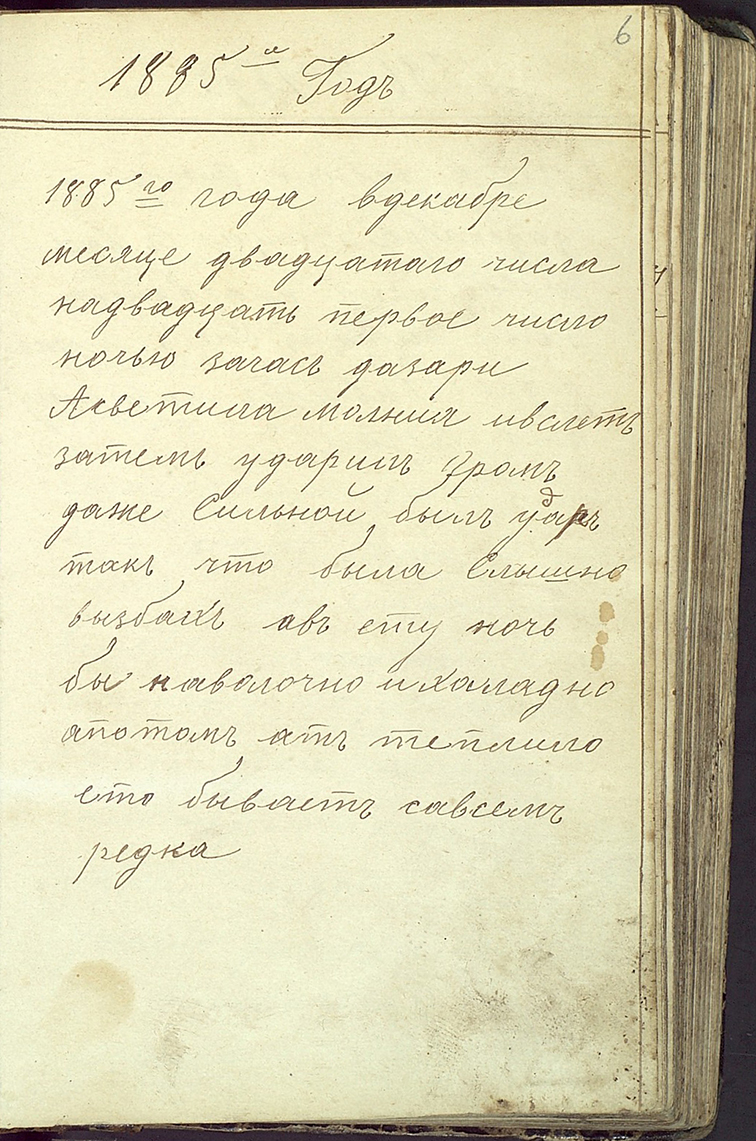 6
1885 й Годъ
1885 го года вдекабре
месяце двадцатаго числа
надвадцать первое число
ночью зачасъ дазари
Асветила молния
затемъ ударилъ громъ
даже Сильной былъ ударъ
такъ что была Слышно
вызбахъ авъ ету ночь
бы наволочно ихаладно
апотомъ атъ теплило
ето бываетъ савсемъ
редка